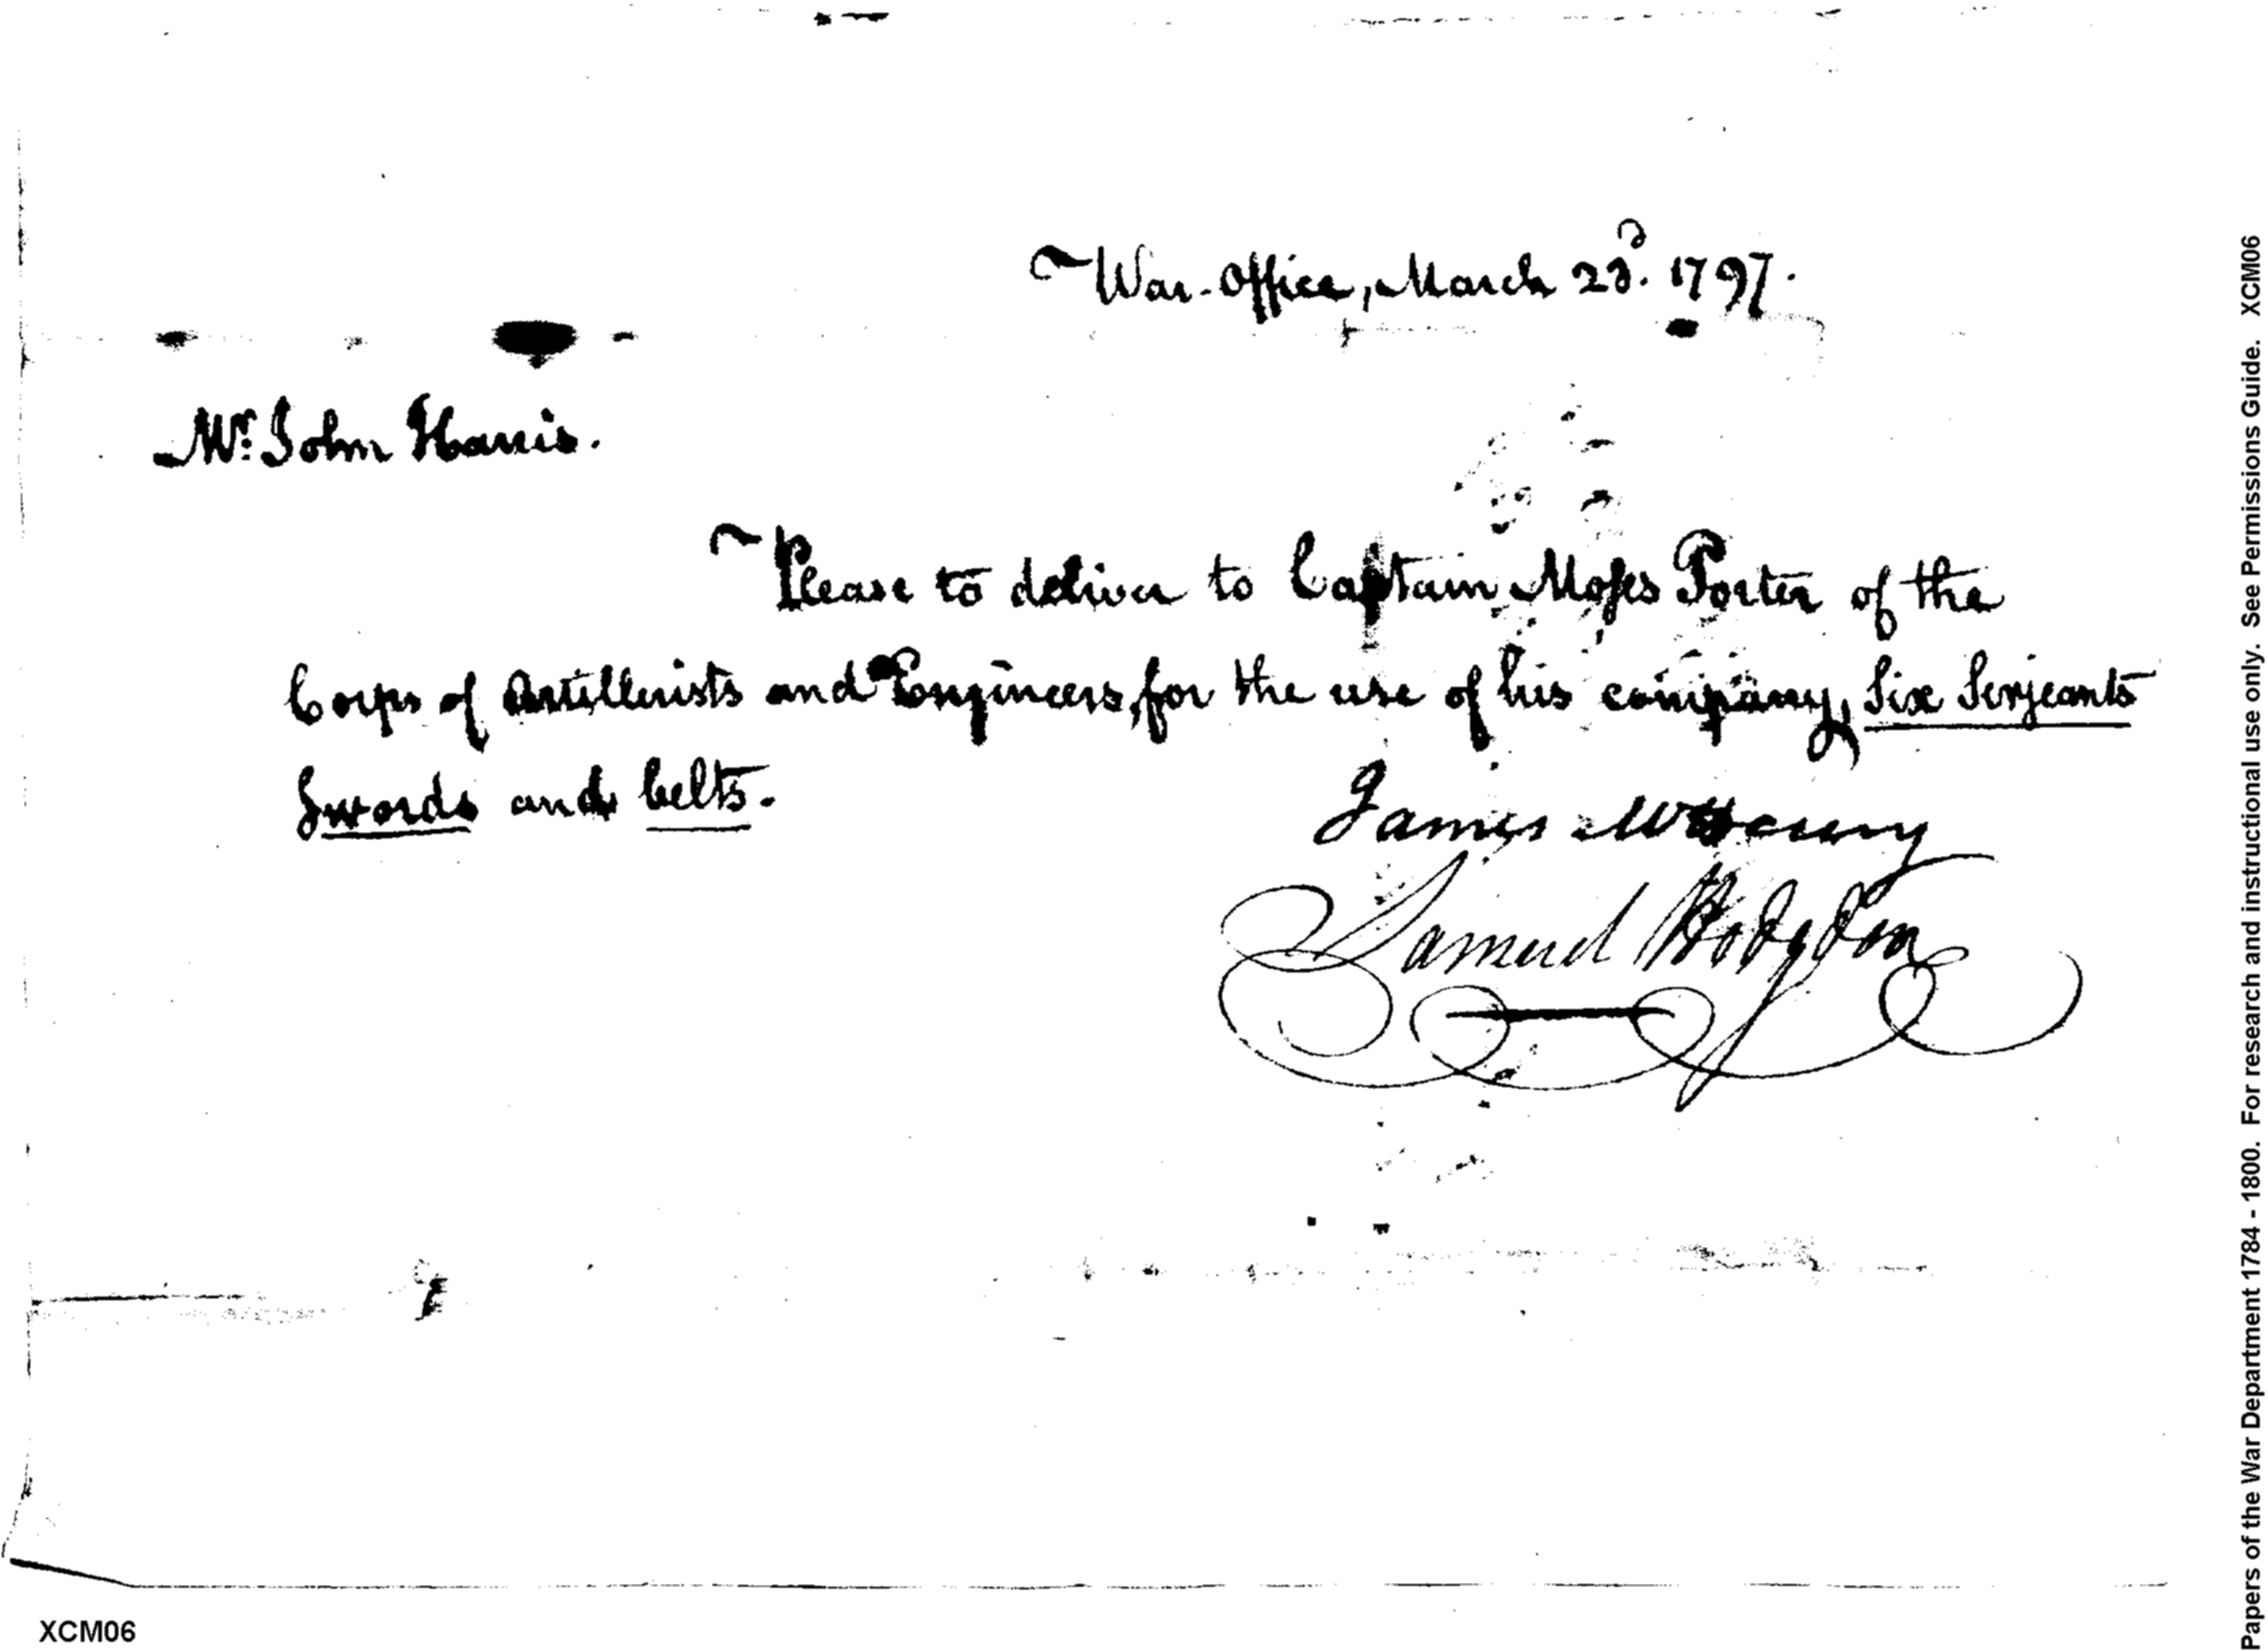 War-Office, March 23d. 1797.
Mr. John Harris.
Please to deliver to Captain Moses Porter of the
Corps of Artillerists and Engineers, for the use of his company, Six Serjeants
Swords and belts.
James McHenry
Samuel Hodgdon
XCM06
Papers of the War Department 1784 - 1800. For research and instructional use only. See Permissions Guide. XCM06